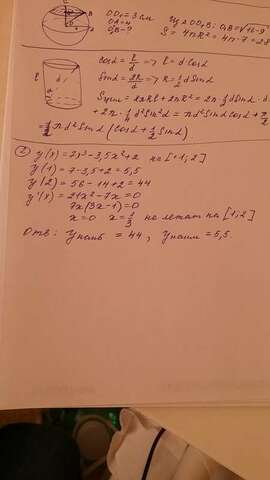 OO₁ = 3 см
OA = 4
O₁B - ?
Из ΔOO₁B: O₁B = √16-9
S = 4πR² = 4π·7 = 28
cosα = l/d => l = d·cosα
sinα = 2R/d => R = 1/2 d sinα
2πRl + 2πR² = 2π 1/2 d sinα · d
+ 2π · 1/4 d² sin²α = πd² sinα cosα +
= 1/2 πd² sinα (cosα + 1/2 sinα)
② y(x) = 7x³ - 3,5x² + 2 на [+1; 2]
y(1) = 7 - 3,5 + 2 = 5,5
y(2) = 56 - 14 + 2 = 44
y'(x) = 21x² - 7x = 0
7x(3x - 1) = 0
x = 0 x = 1/3 не лежат на [1; 2]
Отв: Yнаиб = 44, Yнаим = 5,5.